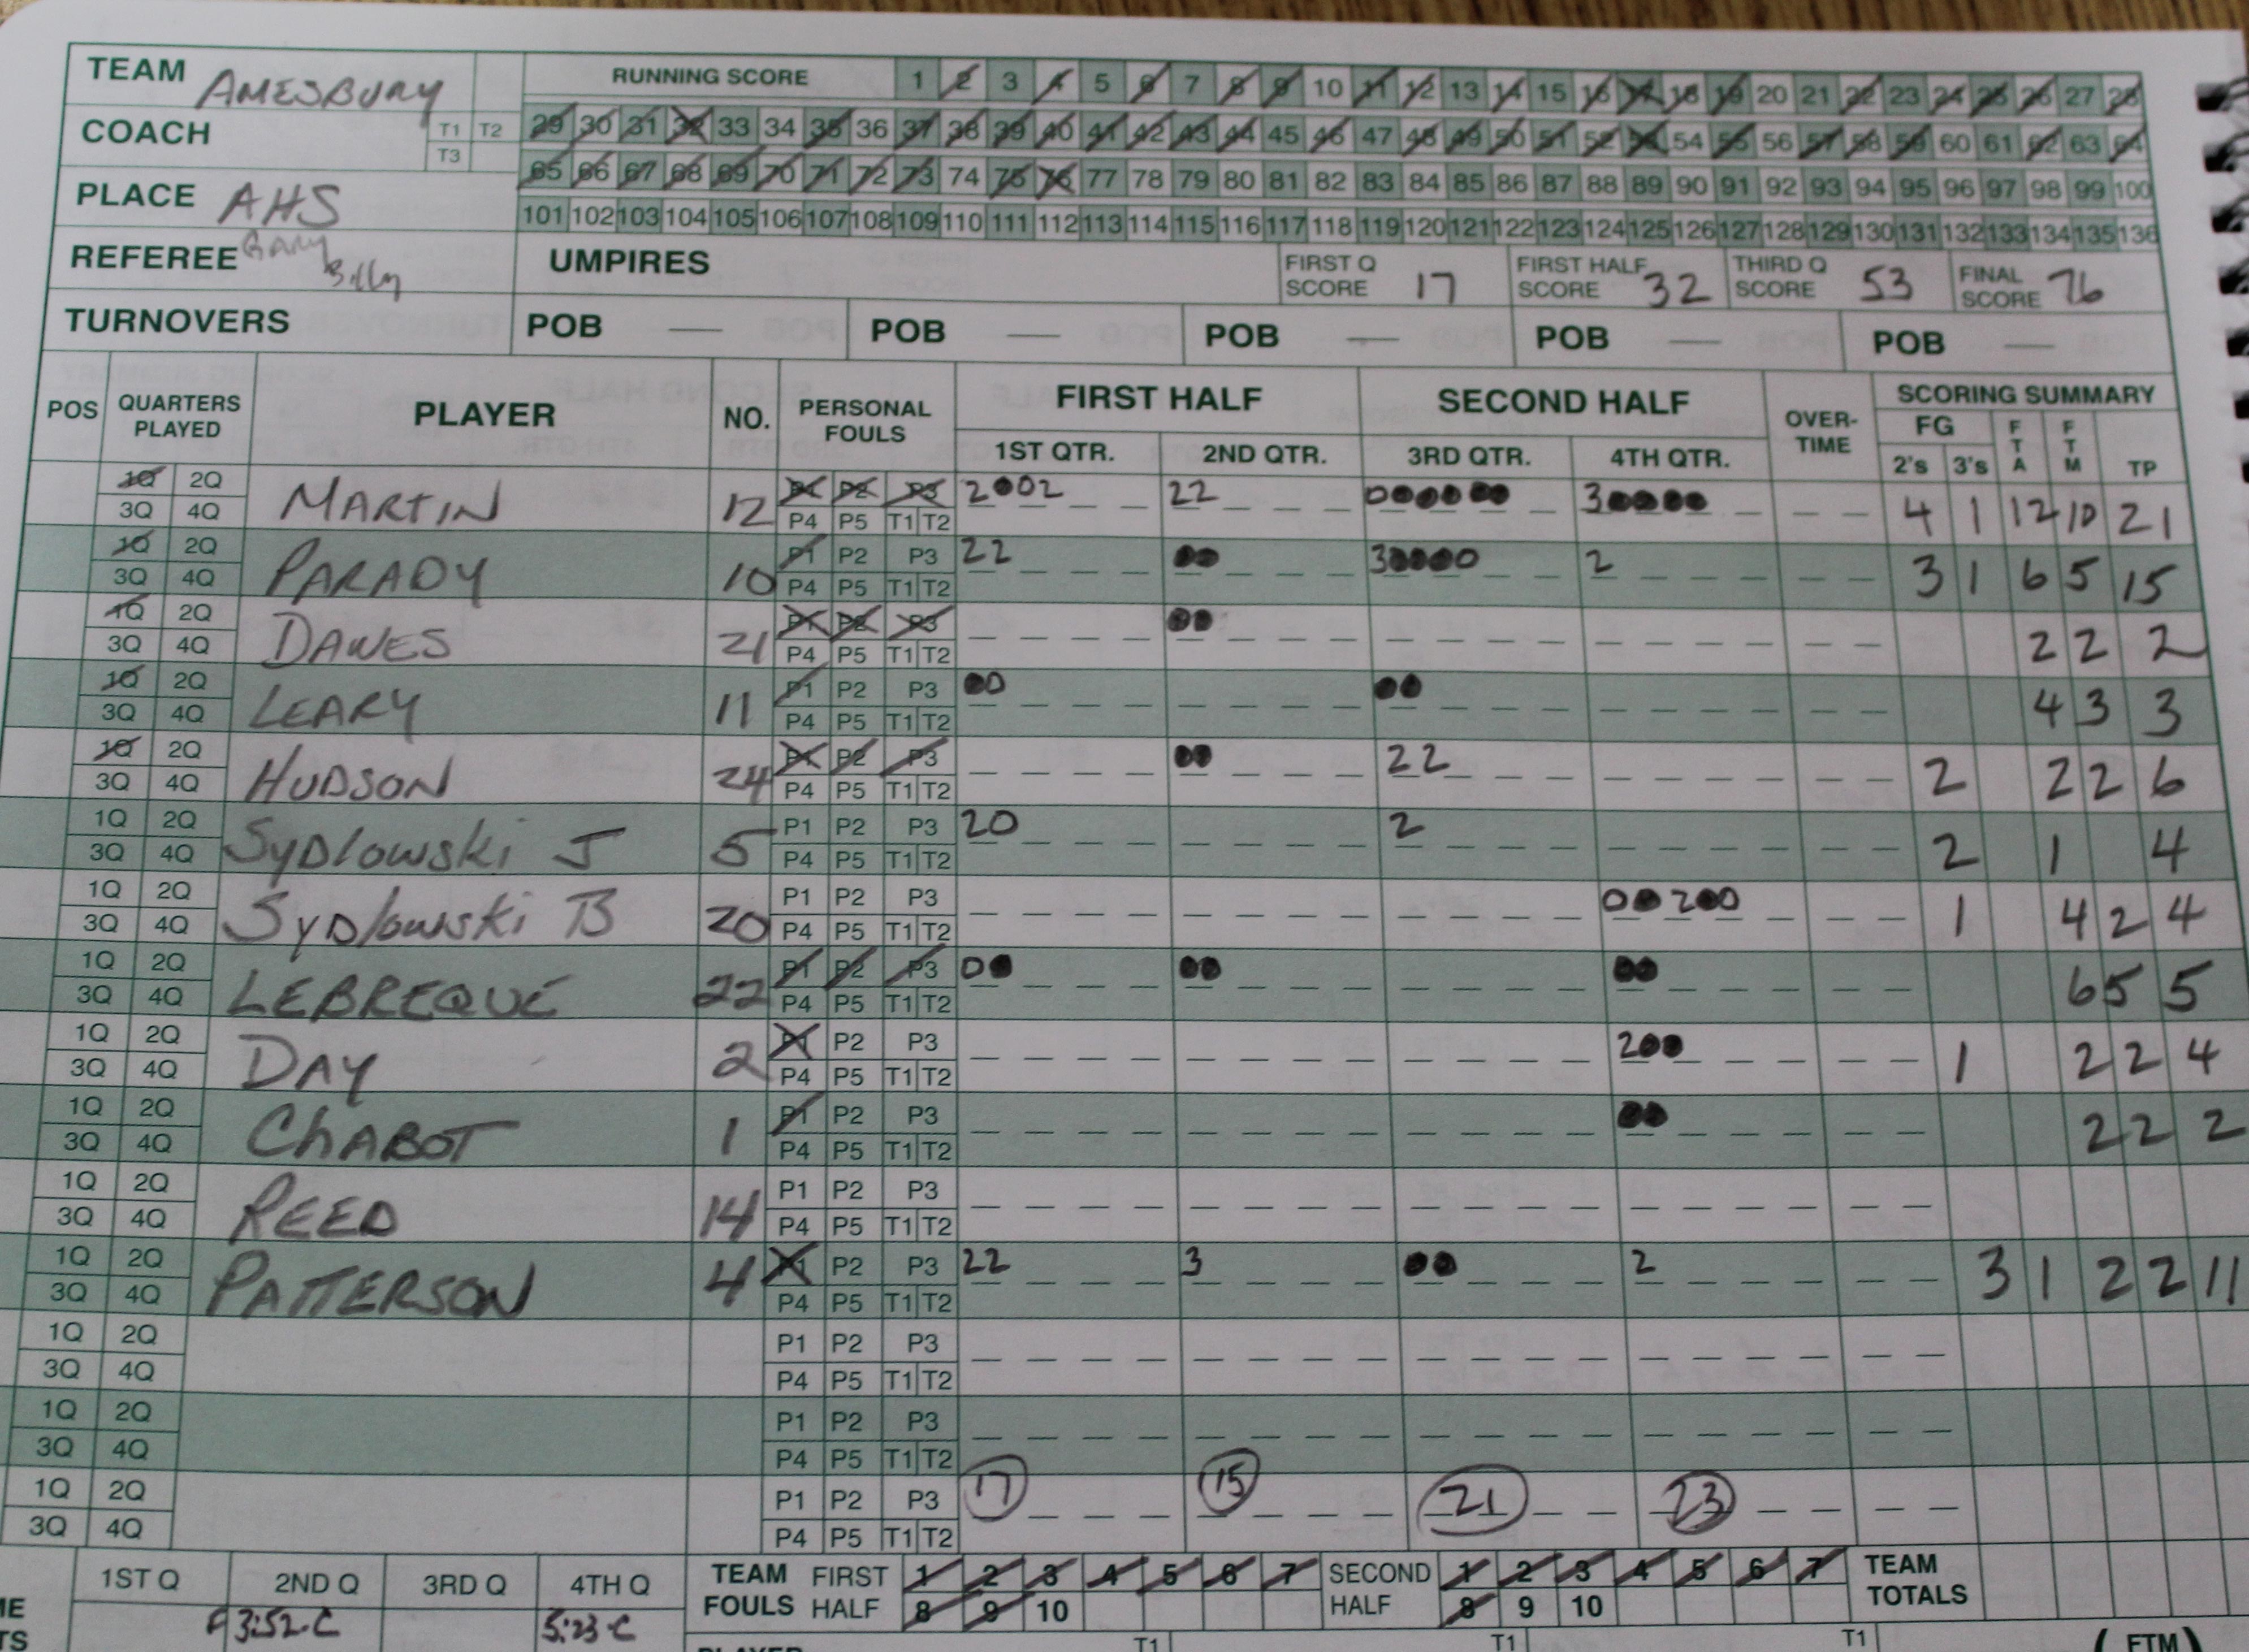 TEAM AMESBURY RUNNING SCORE 1 2 3 4 5 6 7 8 9 10 11 12 13 14 15 16 17 18 19 20 21 22 23 24 25 26 27 28
COACH T1 T2 29 30 31 32 33 34 35 36 37 38 39 40 41 42 43 44 45 46 47 48 49 50 51 52 53 54 55 56 57 58 59 60 61 62 63 64
T3 65 66 67 68 69 70 71 72 73 74 75 76 77 78 79 80 81 82 83 84 85 86 87 88 89 90 91 92 93 94 95 96 97 98 99 100
PLACE AHS 101 102 103 104 105 106 107 108 109 110 111 112 113 114 115 116 117 118 119 120 121 122 123 124 125 126 127 128 129 130 131 132 133 134 135 136
REFEREE Gary Billy UMPIRES FIRST Q SCORE 17 FIRST HALF SCORE 32 THIRD Q SCORE 53 FINAL SCORE 76
TURNOVERS POB — POB — POB — POB — POB —
POS QUARTERS PLAYED PLAYER NO. PERSONAL FOULS FIRST HALF SECOND HALF OVER-TIME SCORING SUMMARY
1ST QTR. 2ND QTR. 3RD QTR. 4TH QTR. FG 2's 3's FTA FTM TP
1Q 2Q MARTIN 12 P1 P2 P3 2●02 22 0●●●●● 3●●●● 4 1 12 10 21
3Q 4Q P4 P5 T1 T2
1Q 2Q PARADY 10 P1 P2 P3 22 ●● 3●●●0 2 3 1 6 5 15
3Q 4Q P4 P5 T1 T2
1Q 2Q DAWES 21 P1 P2 P3 ●● 2 2 2
3Q 4Q P4 P5 T1 T2
1Q 2Q LEARY 11 P1 P2 P3 ●0 ●● 4 3 3
3Q 4Q P4 P5 T1 T2
1Q 2Q HUDSON 24 P1 P2 P3 ●● 22 2 2 2 6
3Q 4Q P4 P5 T1 T2
1Q 2Q SyDlowski J 5 P1 P2 P3 20 2 2 1 4
3Q 4Q P4 P5 T1 T2
1Q 2Q SyDlowski B 20 P1 P2 P3 0● 2●0 1 4 2 4
3Q 4Q P4 P5 T1 T2
1Q 2Q LEBREQUE 22 P1 P2 P3 0● ●● ●● 6 5 5
3Q 4Q P4 P5 T1 T2
1Q 2Q DAY 2 P1 P2 P3 2●● 1 2 2 4
3Q 4Q P4 P5 T1 T2
1Q 2Q ChABOT 1 P1 P2 P3 ●● 2 2 2
3Q 4Q P4 P5 T1 T2
1Q 2Q REED 14 P1 P2 P3
3Q 4Q P4 P5 T1 T2
1Q 2Q PATTERSON 4 P1 P2 P3 22 3 ●● 2 3 1 2 2 11
3Q 4Q P4 P5 T1 T2
1Q 2Q P1 P2 P3
3Q 4Q P4 P5 T1 T2
1Q 2Q P1 P2 P3
3Q 4Q P4 P5 T1 T2
1Q 2Q P1 P2 P3 17 15 21 23
3Q 4Q P4 P5 T1 T2
1ST Q 2ND Q 3RD Q 4TH Q TEAM FOULS FIRST HALF 1 2 3 4 5 6 7 SECOND HALF 1 2 3 4 5 6 7 TEAM TOTALS
3:52-C 5:23-C 8 9 10 8 9 10
T1 T1 T1 (FTM)